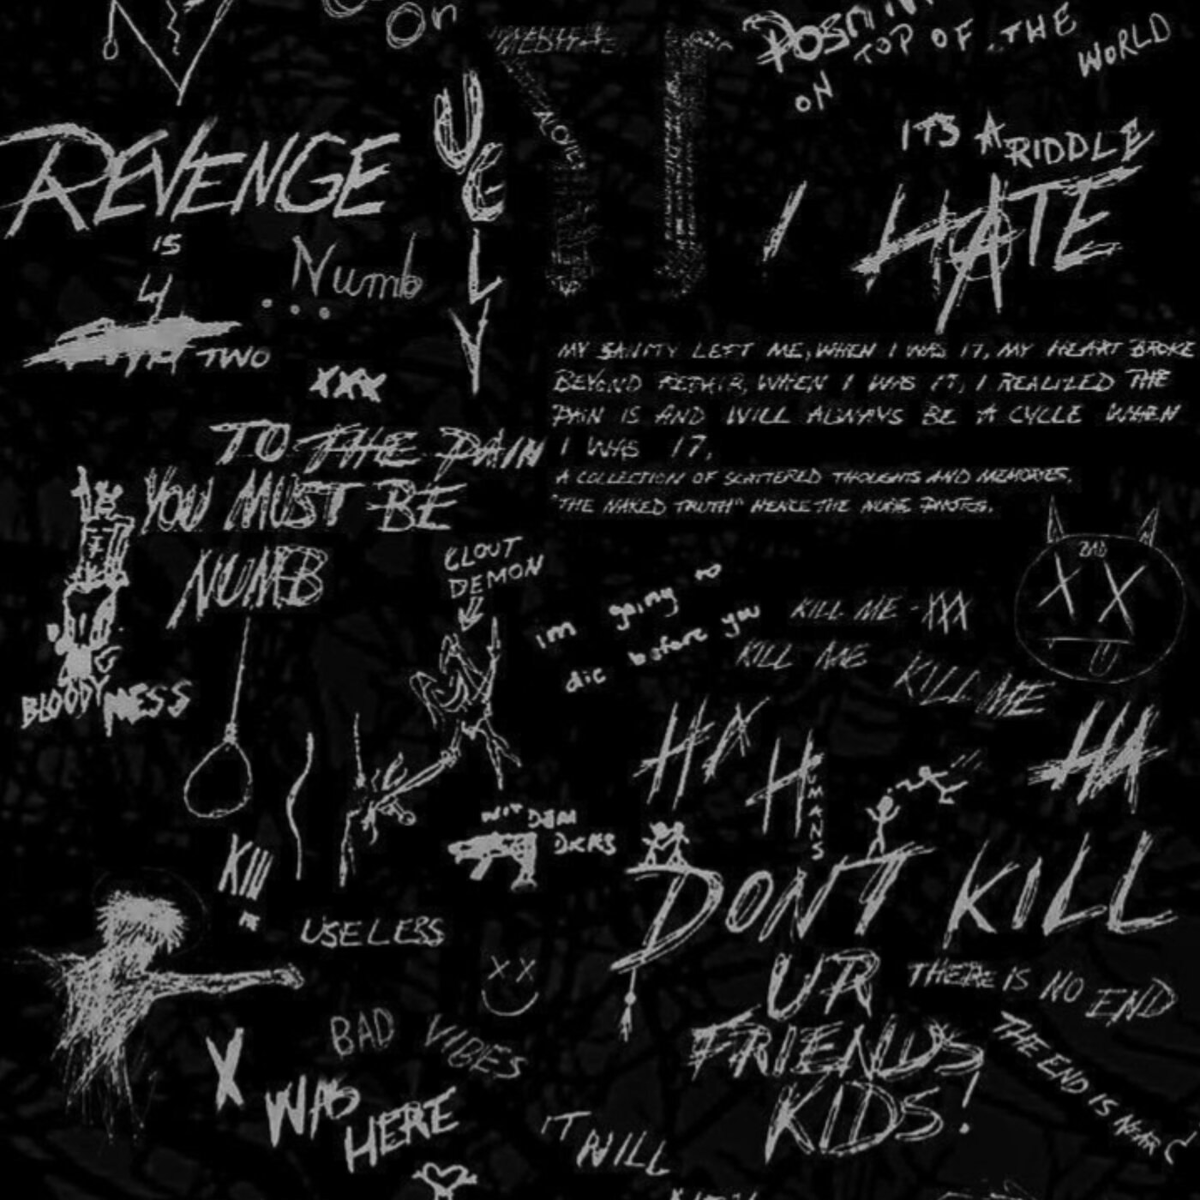 On
TOP OF THE
WORLD
ON
ITS A RIDDLE
REVENGE
UGLY
I HATE
IS
4
Numb
...
TWO
XXX
MY SANITY LEFT ME, WHEN I WAS 17, MY HEART BROKE
BEYOND REPAIR, WHEN I WAS 17, I REALIZED THE
PAIN IS AND WILL ALWAYS BE A CYCLE WHEN
I WAS 17,
A COLLECTION OF SCATTERED THOUGHTS AND MEMORIES,
"THE NAKED TRUTH" HENCE THE NUDE PHOTOS.
TO THE PAIN
YOU MUST BE
NUMB
CLOUT
DEMON
BAD
im going to
die before you
KILL ME - XXX
KILL ME
KILL ME
BLOODY MESS
HA
HUMANS
HA
DONT KILL
UR
FRIENDS
KIDS!
USELESS
THERE IS NO END
THE END IS NEAR
BAD VIBES
X
WAS
HERE
IT WILL